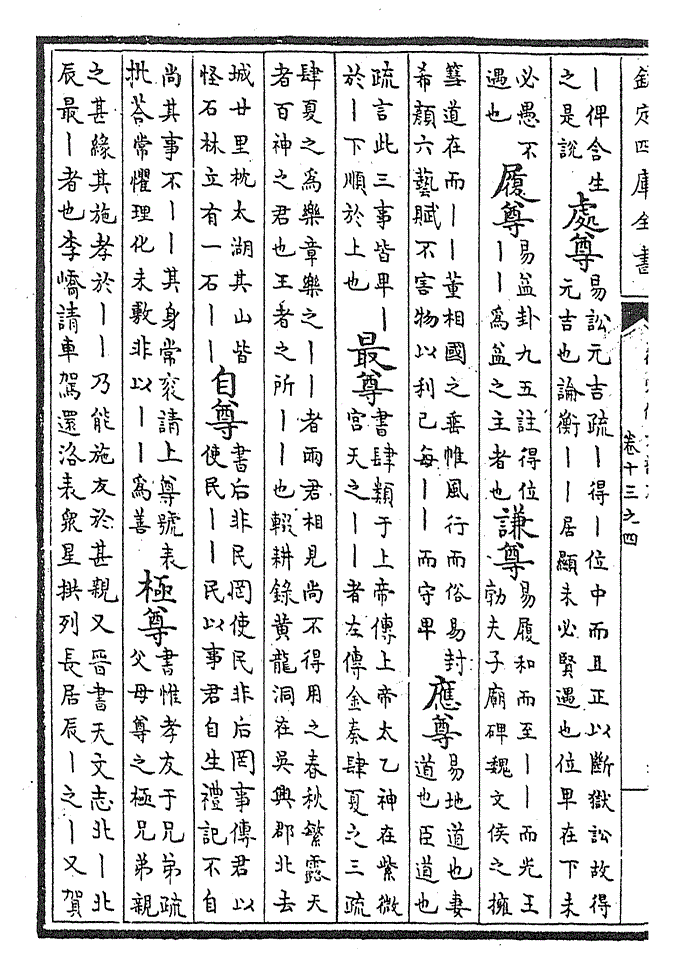 欽定四庫全書
卷十三之四
丨俾含生
之是説
處尊
易訟元吉疏丨得丨位中而且正以斷獄訟故得
元吉也論衡丨丨居顯未必賢遇也位卑在下未
必愚不
遇也
履尊
易益卦九五註得位
丨丨為益之主者也
謙尊
易履和而至丨丨而光王
勃夫子廟碑魏文侯之擁
篲道在而丨丨董相國之垂帷風行而俗易封
希顔六藝賦不害物以利己每丨丨而守卑
應尊
易地道也妻
道也臣道也
疏言此三事皆卑丨
於丨下順於上也
最尊
書肆類于上帝傳上帝太乙神在紫微
宫天之丨丨者左傳金奏肆夏之三疏
肆夏之為樂章樂之丨丨者兩君相見尚不得用之春秋繁露天
者百神之君也王者之所丨丨也輟耕錄黄龍洞在吳興郡北去
城廿里枕太湖其山皆
怪石林立有一石丨丨
自尊
書后非民罔使民非后罔事傳君以
使民丨丨民以事君自生禮記不自
尚其事不丨丨其身常衮請上尊號表
批荅常懼理化未敷非以丨丨為善
極尊
書惟孝友于兄弟疏
父母尊之極兄弟親
之甚緣其施孝於丨丨乃能施友於甚親又晉書天文志北丨北
辰最丨者也李嶠請車駕還洛表衆星拱列長居辰丨之丨又賀